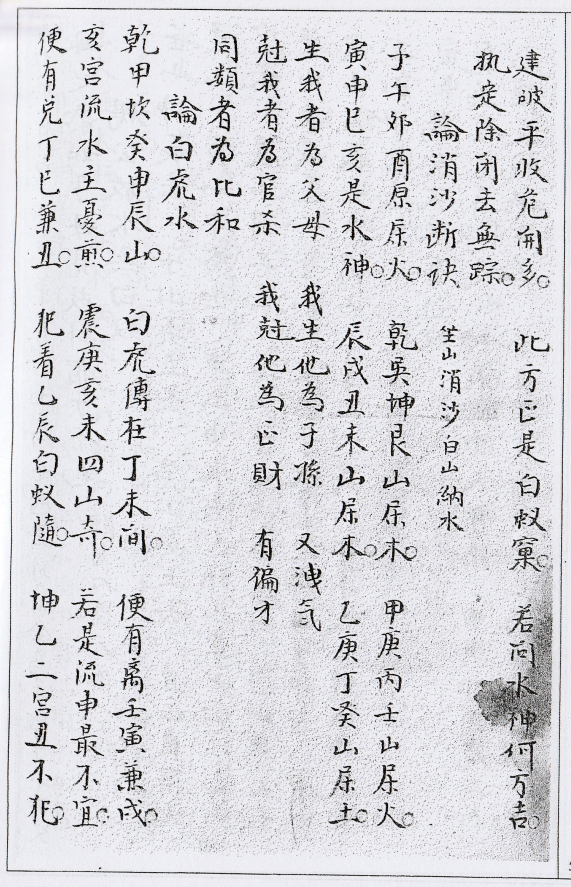 建破平收危開多。 此方正是白蚁窠。 若问水神何方吉。
执定除闭去無踪。
論消沙断诀 坐山消沙白山納水
子午夘酉原屈火。 乾巽坤艮山屈木。 甲庚丙壬山屈火。
寅申巳亥是水神。 辰戌丑未山屈木。 乙庚丁癸山屈土。
生我者為父母 我生他為子孫 又洩气
尅我者為官杀 我尅他為正財 有偏才
同類者為比和
論白虎水
乾甲坎癸申辰山。 白虎傳在丁未间。 便有离壬寅兼戌。
亥宫流水主憂煎。 震庚亥未四山奇。 若是流申最不宜。
便有兑丁巳兼丑。 犯着乙辰白蚁隨。 坤乙二宫丑不犯。